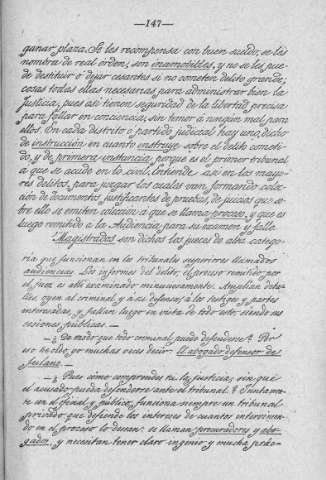 —147—
ganar plaza. Se les recompensa con buen sueldo, se les
nombra de real orden; son inamovibles, y no se les pue-
de destituir o dejar cesantes si no cometen delito grande;
cosas todas ellas necesarias para administrar bien la
Justicia, pues así tienen seguridad de la libertad precisa
para fallar en conciencia, sin temor á ningún mal para
ellos. En cada distrito ó partido judicial hay uno, dicho
de instrucción en cuanto instruye sobre el delito cometi-
do, y de primera instancia porque es el primer tribunal
a que se acude en lo civil. Entiende así en los mayo-
res delitos, para juzgar los cuales van formando colec-
ción de documentos justificantes de pruebas, de juicios que so-
bre ello se emiten colección a que se llama proceso, y que es
luego remitido a la Audiencia para su examen y fallo.
Magistrados son dichos los jueces de alta catego-
ría que funcionan en los tribunales superiores llamados
audiencias. Los informes del delito, el proceso remitido por
el juez es allí examinado minuciosamente. Amplían deta-
lles, oyen al criminal, y a su defensor, á los testigos y partes
interesadas, y fallan luego en vista de todo esto, siendo sus
sesiones públicas.—
—¿De modo que todo criminal puede defenderse? Por
eso he oído yo muchas veces decir: El abogado defensor de
fulano.—
—¿Pues cómo comprendes tu la justicia, sin que
el acusado pueda defenderse ante el tribunal? Juntamen-
te con el oficial y público, funciona siempre un tribunal
privado que defiende los intereses de cuantos intervinien-
do en el proceso lo desean: se llaman procuradores y abo-
gados, y necesitan tener claro ingenio y mucha prác-